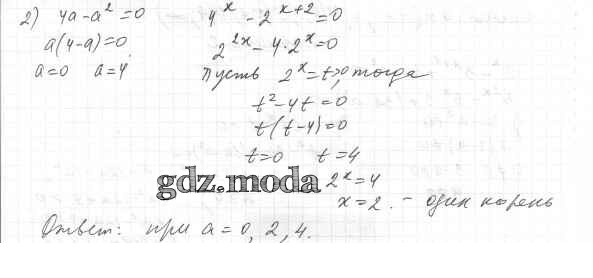 2) 4a-a²=0 4^x - 2^{x+2}=0
a(4-a)=0. 2^{2x} - 4·2^x=0
a=0 a=4 Пусть 2^x=t>0, тогда
t²-4t=0
t(t-4)=0
t=0 t=4
gdz.moda 2^x=4
x=2. - один корень
Ответ: при a=0, 2, 4.